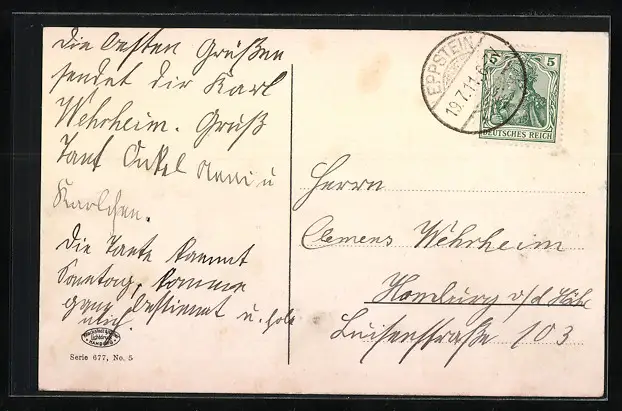 Die besten Grüßen
sendet dir Karl
Wehrheim. Gruß
Tant Onkel Anni u
Karlchen.
Die Tante kommt
Sonntag, komme
ganz bestimmt u. hole
mich.
Serie 677, No. 5
EPPSTEIN
19.7.11.
5 5
DEUTSCHES REICH
Herrn
Clemens Wehrheim
Homburg v/d Höhe
Luisenstraße 103